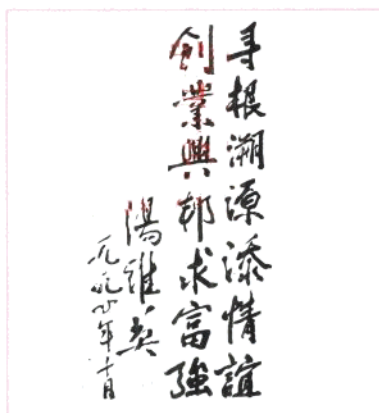 寻根溯源添情誼
創業興邦求富強
湯維英
一九九年十月